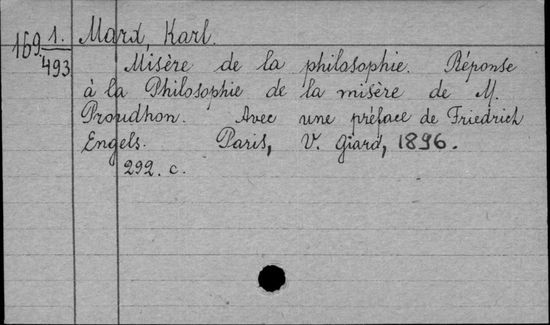 169. 1.
493
Marx, Karl.
Misère de la philosophie. Réponse
à la Philosophie de la misère de M.
Proudhon. Avec une préface de Friedrich
Engels. Paris, V. Giard, 1896.
292. c.